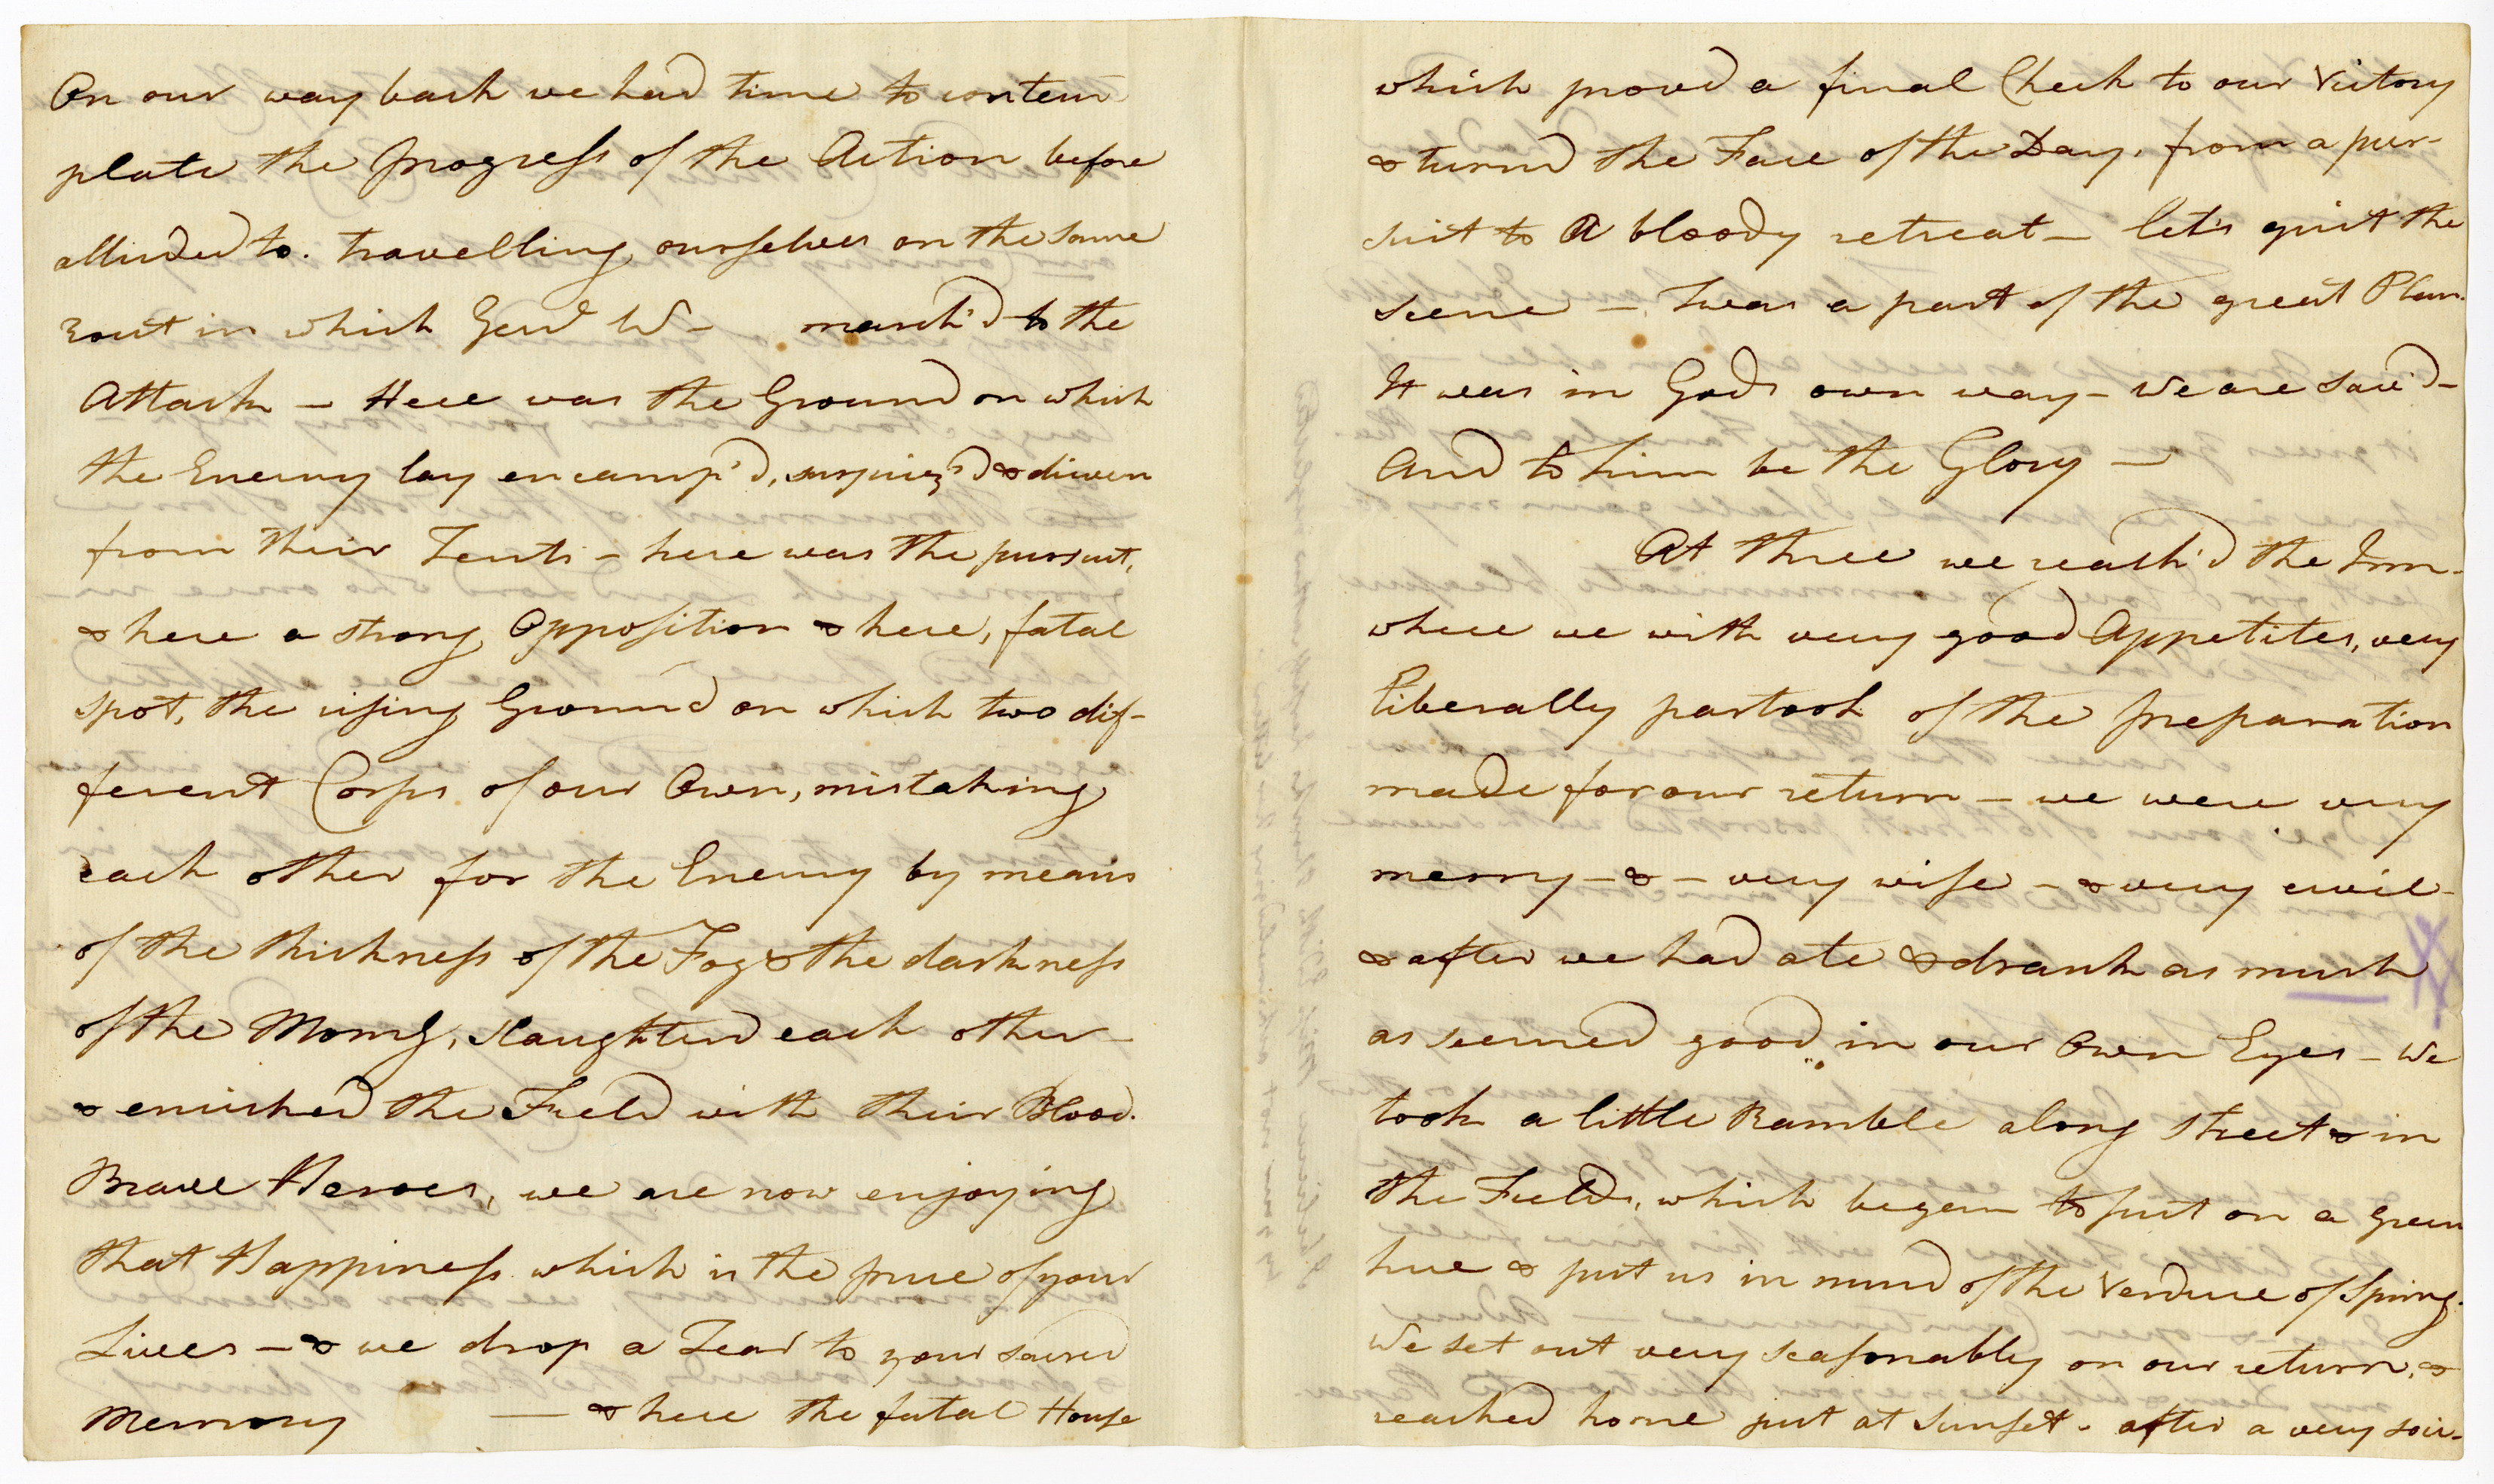 On our way back we had time to contem
plate the Progress of the Action before
alluded to. travelling ourselves on the same
rout in which Genl W- march'd to the
Attack - Here was the Ground on which
the Enemy lay encamp'd, surpriz'd & driven
from their Tents - here was the pursuit,
& here a strong Opposition & here, fatal
spot, the rising Ground on which two dif-
ferent Corps of our Own, mistaking
each other for the Enemy by means
of the thickness of the Fog & the darkness
of the Morng, slaughterd each other -
& enriched the Field with their Blood.
Brave Heroes, we are now enjoying
that Happiness which is the price of your
Lives - & we drop a Tear to your sacred
Memory — & here the fatal House
which proved a final Check to our Victory
& turnd the Face of the Day, from a pur-
suit to A bloody retreat - let's quit the
scene - Twas a part of the great Plan.
It was in Gods own way - We are sav'd -
And to him be the Glory -
At three we reach'd the Inn -
where we with very good Appetites, very
liberally partook of the Preparation
made for our return - we were very
merry - & - very wise - & very civil -
& after we had ate & drank as much
as seemed good in our Own Eyes - We
took a little Ramble along Street & in
the Fields, which began to put on a green
hue & put us in mind of the Verdure of Spring.
We set out very seasonably on our return, &
reached home just at Sunset - after a very soci-